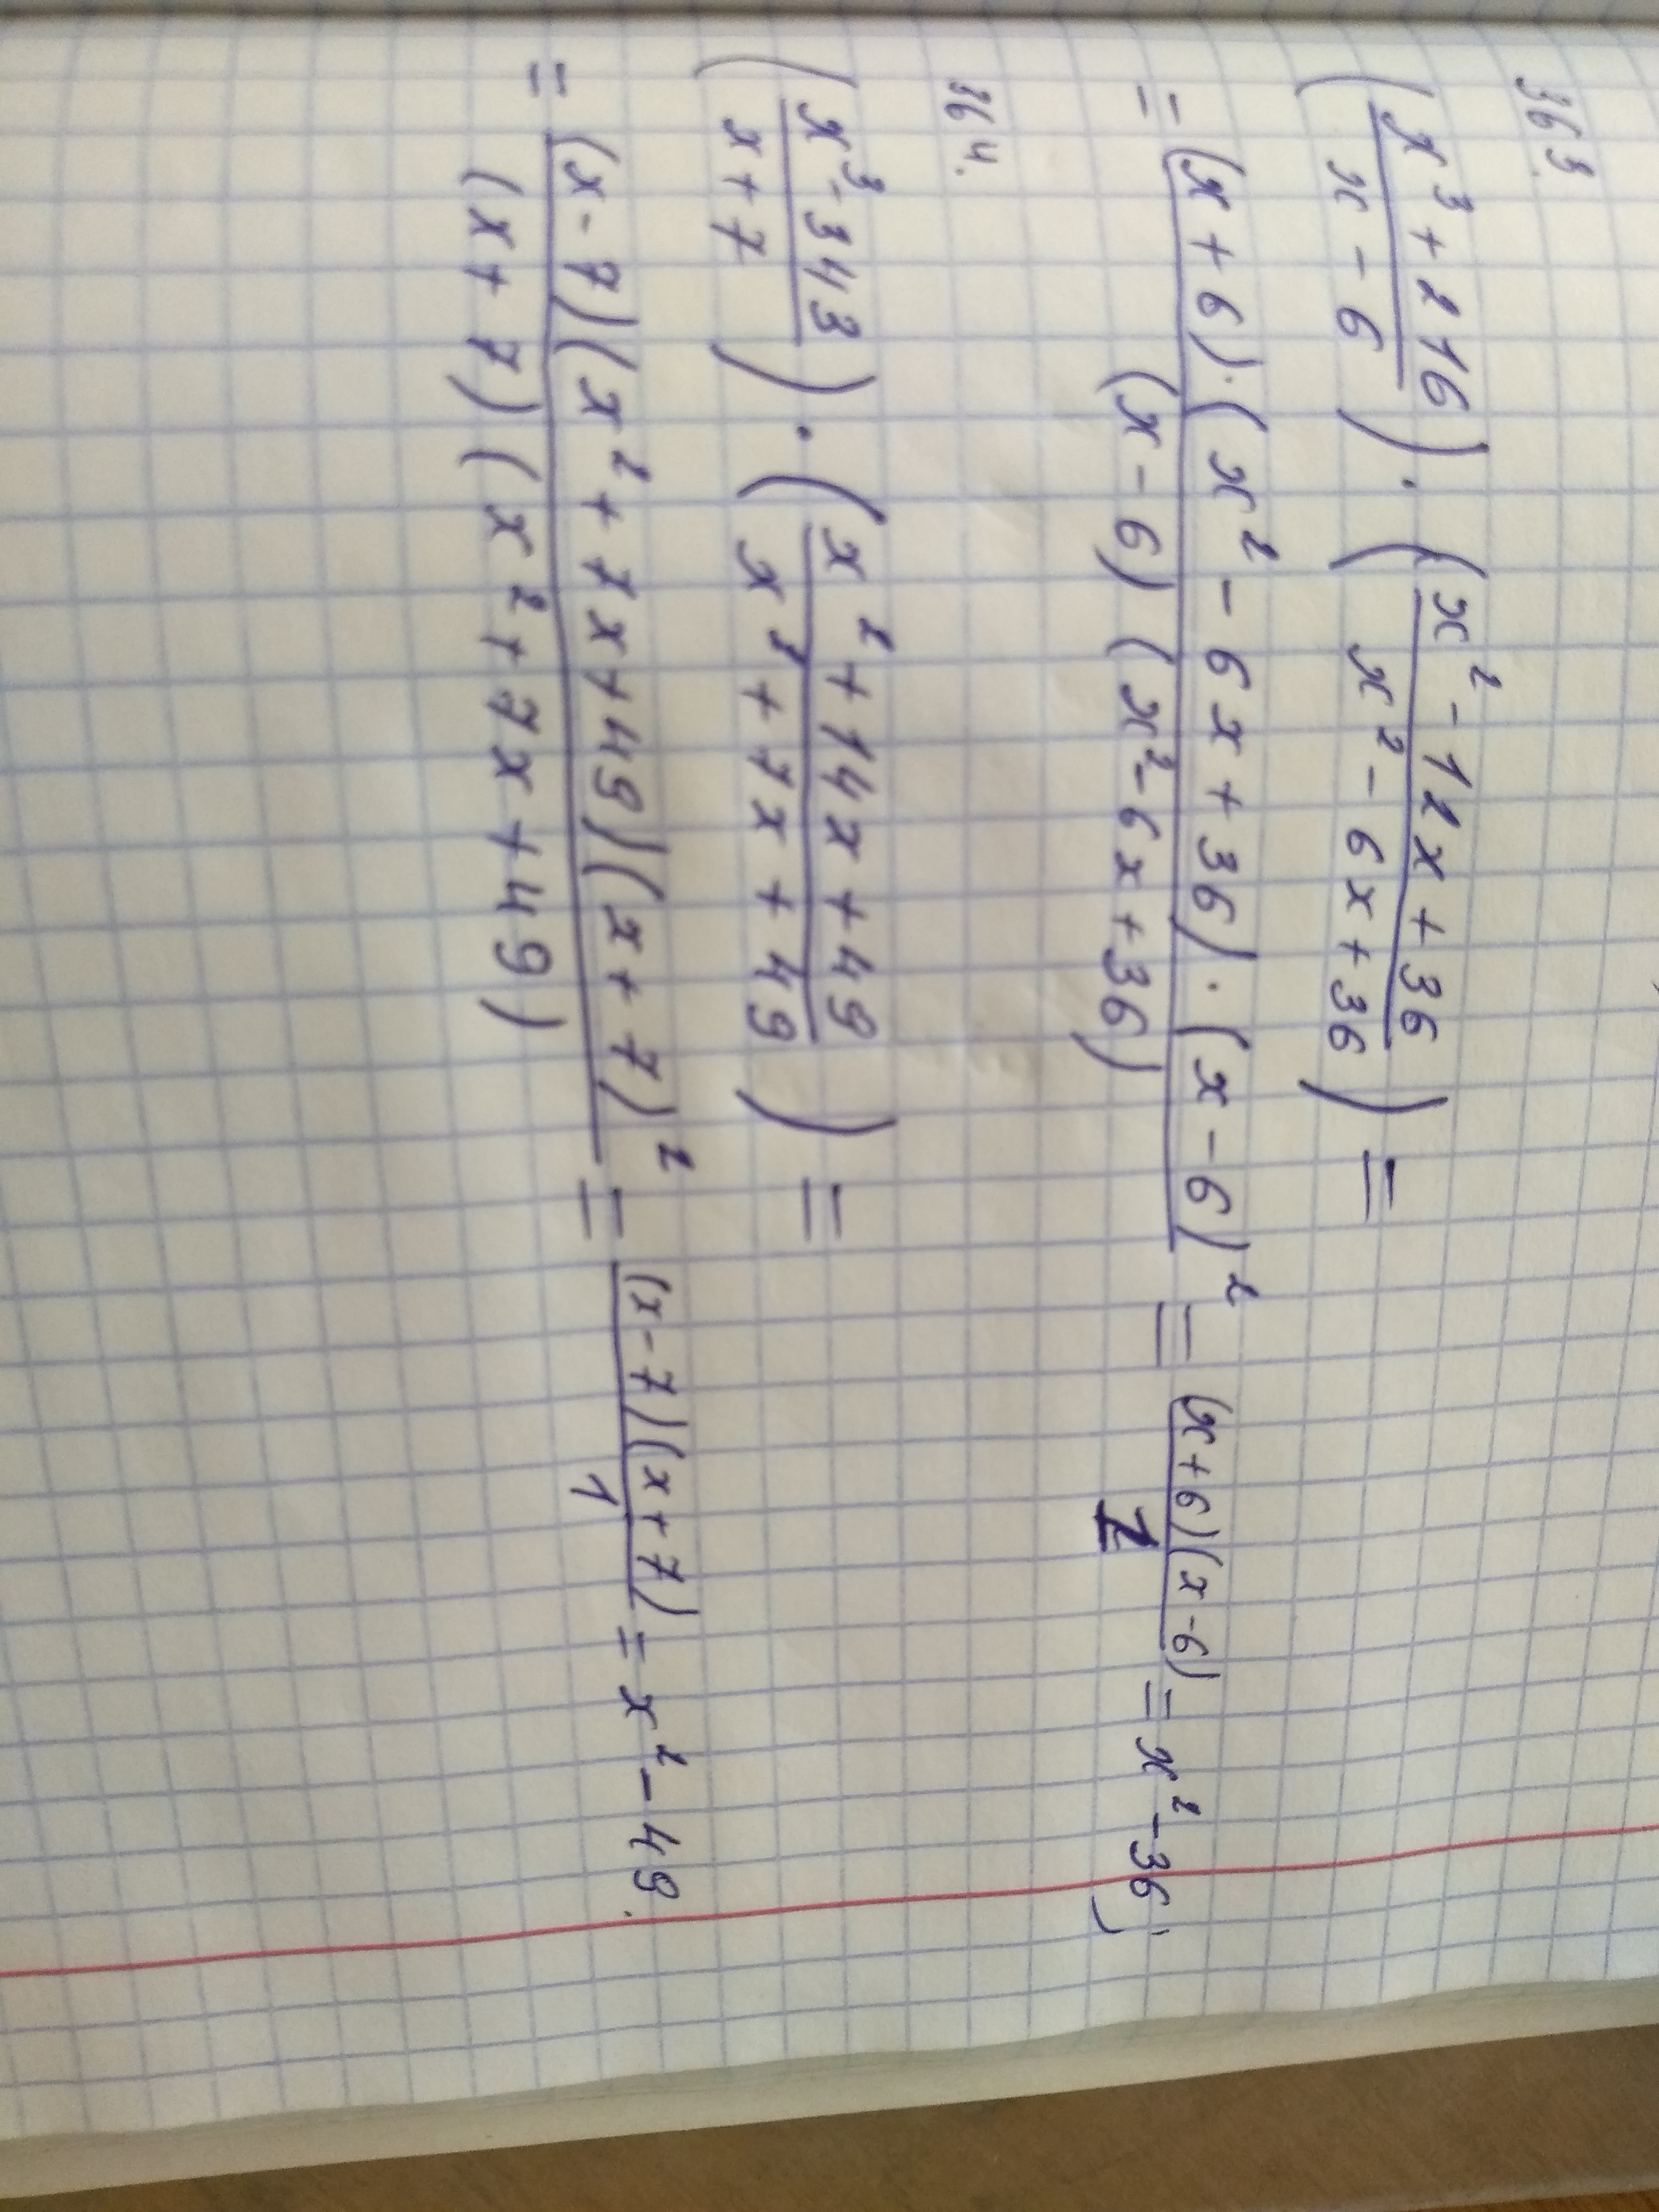 363.
(x³+216 / x-6) · (x²-12x+36 / x²-6x+36) =
= (x+6)·(x²-6x+36)·(x-6)² / (x-6)(x²-6x+36) = (x+6)(x-6) / 1 = x²-36)
364.
(x³-343 / x+7) · (x²+14x+49 / x²+7x+49) =
= (x-7)(x²+7x+49)(x+7)² / (x+7)(x²+7x+49) = (x-7)(x+7) / 1 = x²-49.